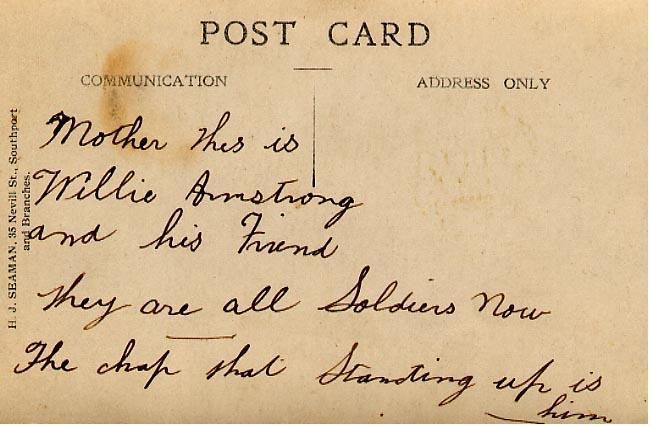 POST CARD
COMMUNICATION
ADDRESS ONLY
H. J. SEAMAN, 35 Nevill St., Southport
and Branches.
Mother this is
Willie Armstrong
and his Friend
they are all Soldiers Now
The chap that Standing up is
him